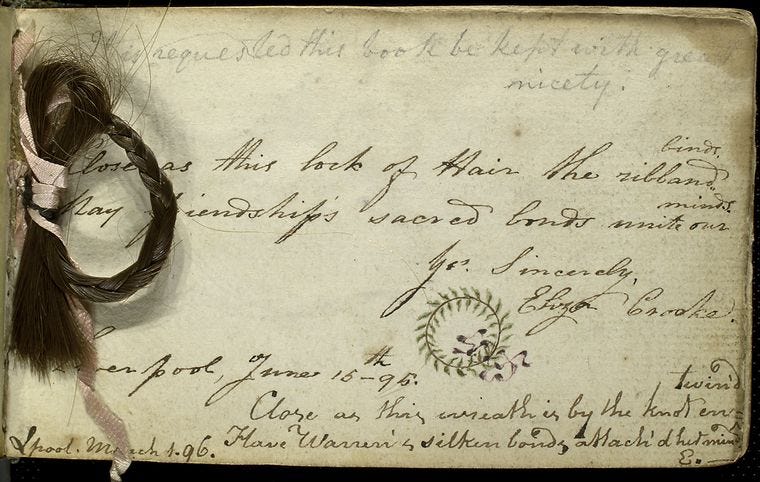 It is requested this book be kept with great
nicety.
Close as this lock of Hair the ribband binds,
May friendship's sacred bonds unite our minds.
Yrs. Sincerely,
Eliza Crooke.
Liverpool, June 15th - 95.
Close as this wreath is by the knot entwin'd
Have Warren's silken bonds, attach'd her mind
Lpool. March 1. 96.
E.